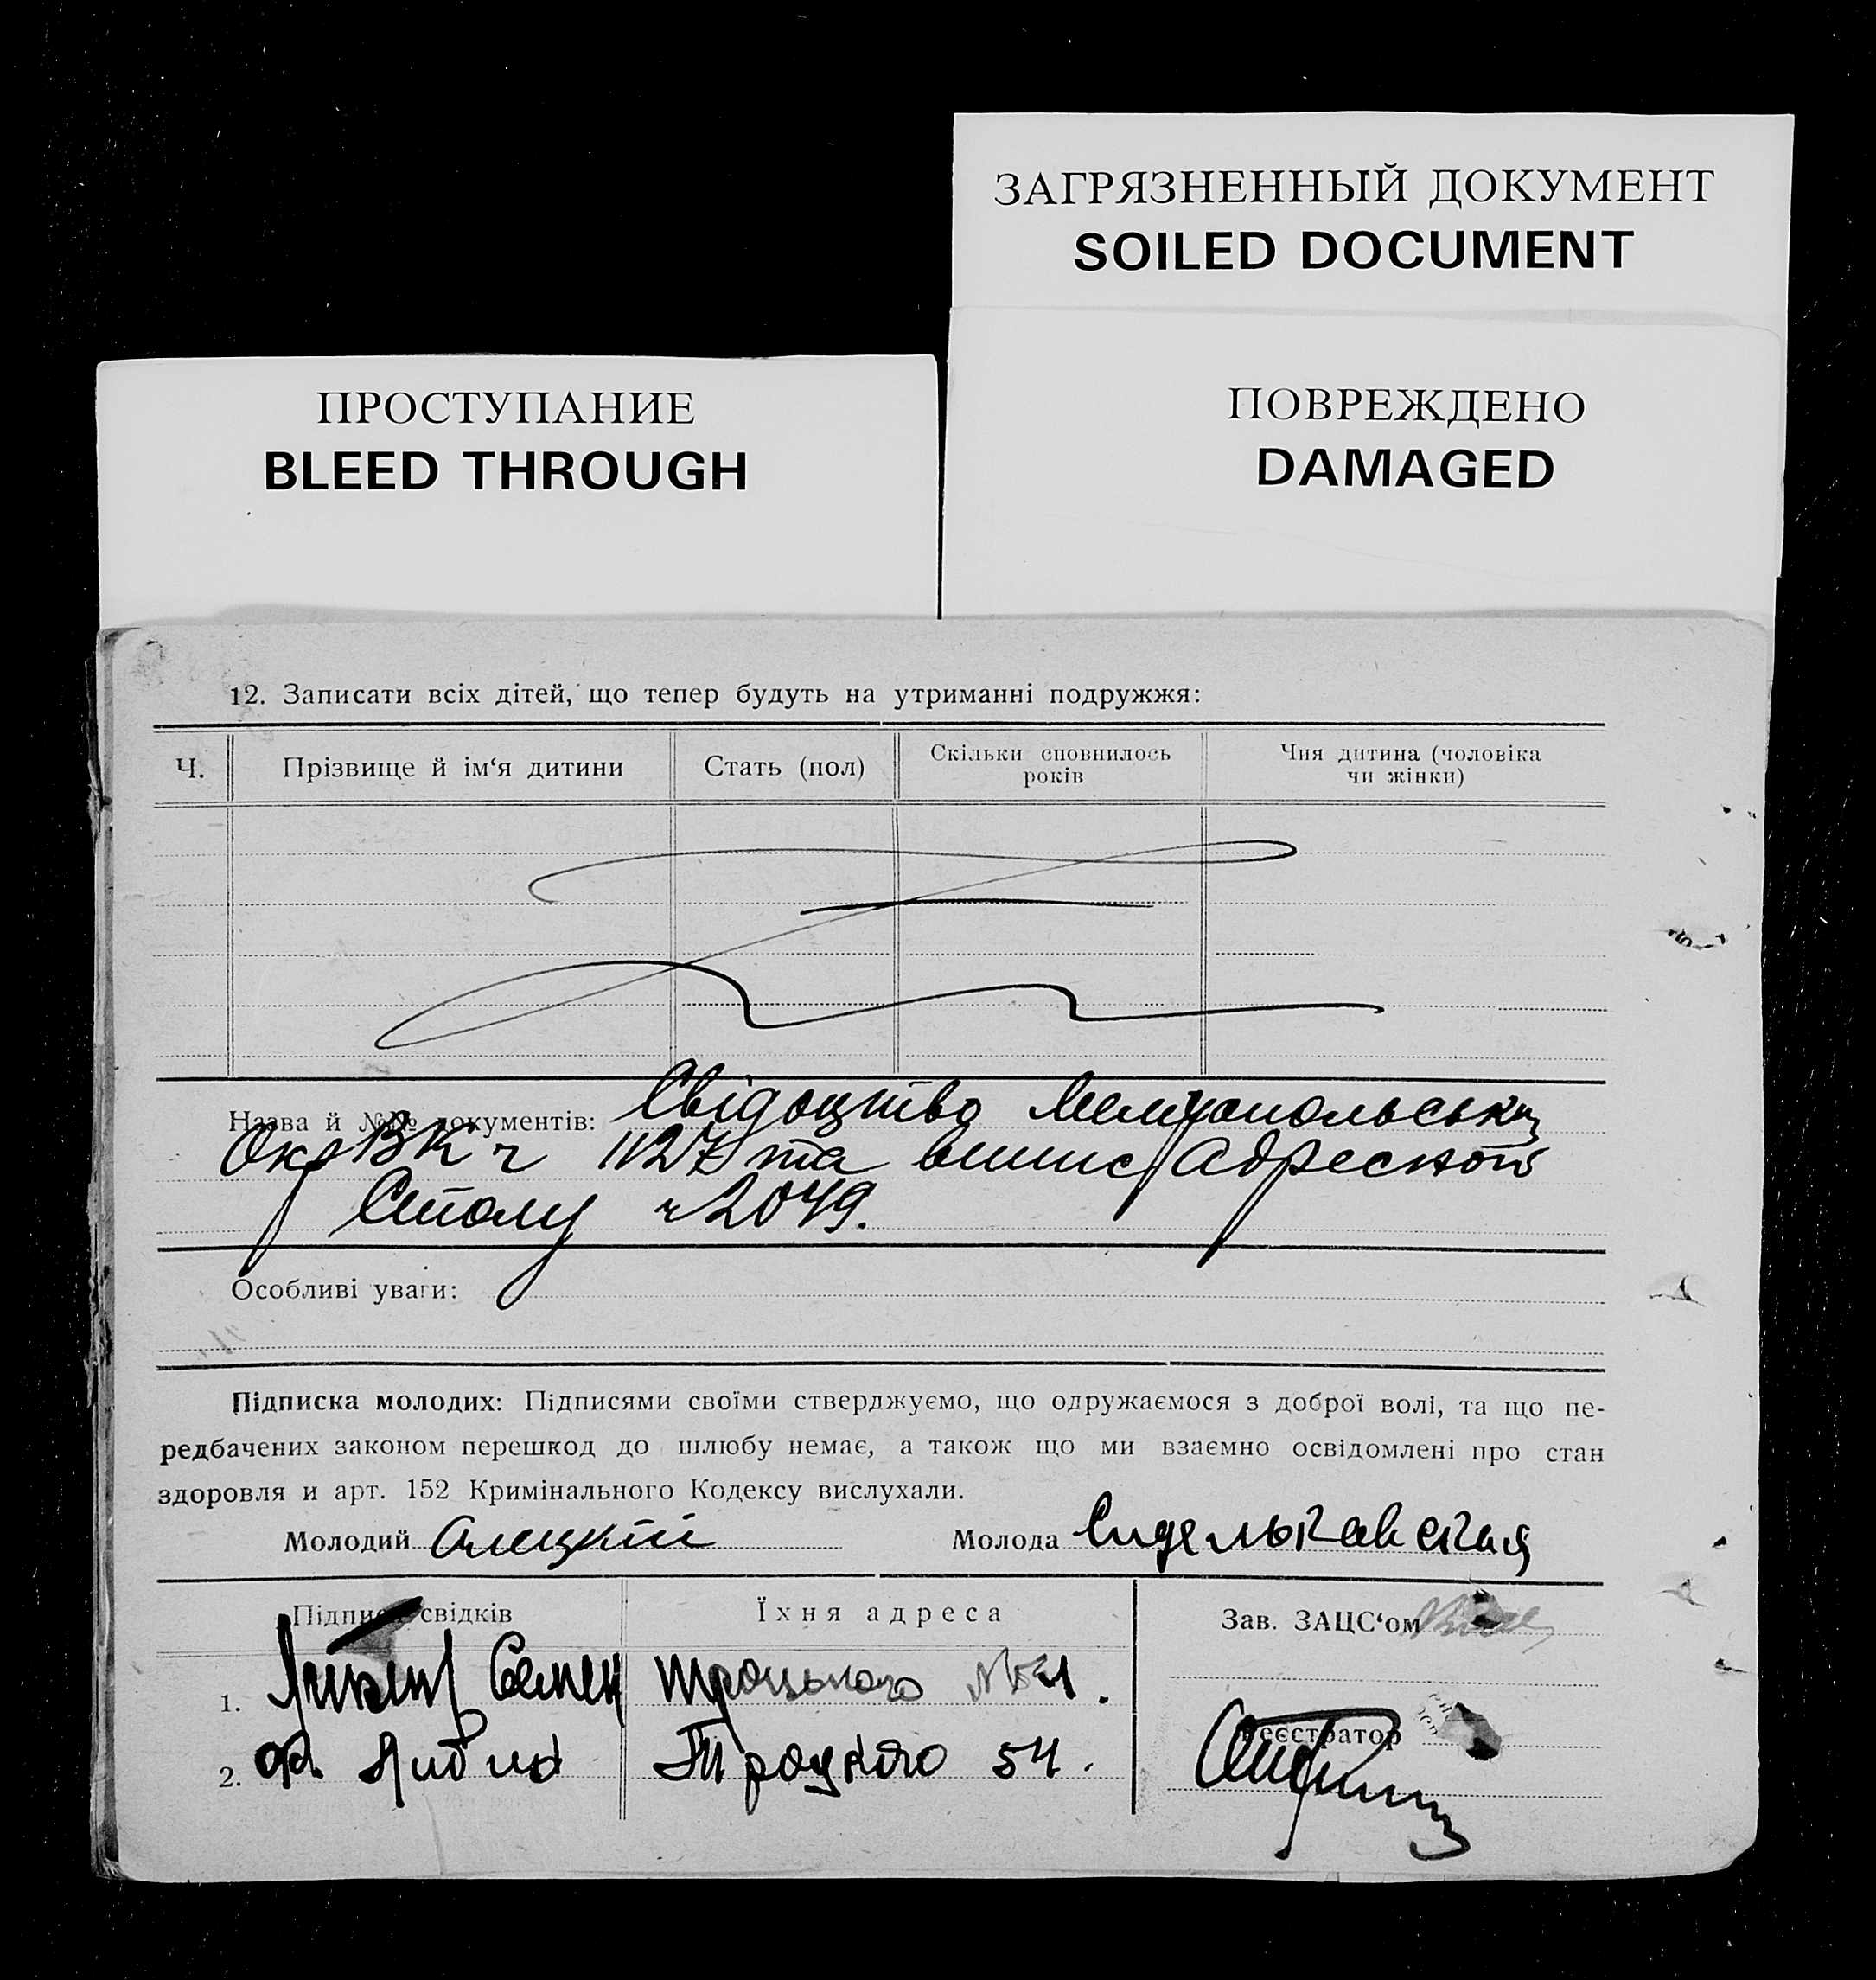 ЗАГРЯЗНЕННЫЙ ДОКУМЕНТ
SOILED DOCUMENT
ПРОСТУПАНИЕ
BLEED THROUGH
ПОВРЕЖДЕНО
DAMAGED
12. Записати всіх дітей, що тепер будуть на утриманні подружжя:
Ч.
Прізвище й ім‘я дитини
Стать (пол)
Скільки сповнилось
років
Чия дитина (чоловіка
чи жінки)
Назва й №№ документів: Свідоцтво Мелітопольськ
ОкрВК ч 1127 та виписи Адресного
Столу ч 2049.
Особливі уваги:
Підписка молодих: Підписями своїми стверджуємо, що одружаємося з доброї волі, та що пе-
редбачених законом перешкод до шлюбу немає, а також що ми взаємно освідомлені про стан
здоровля и арт. 152 Кримінального Кодексу вислухали.
Молодий
Молода
Підписи свідків
Їхня адреса
Зав. ЗАЦС‘ом
1. Семен Троцького
2. Троцкого 54.
Реєстратор